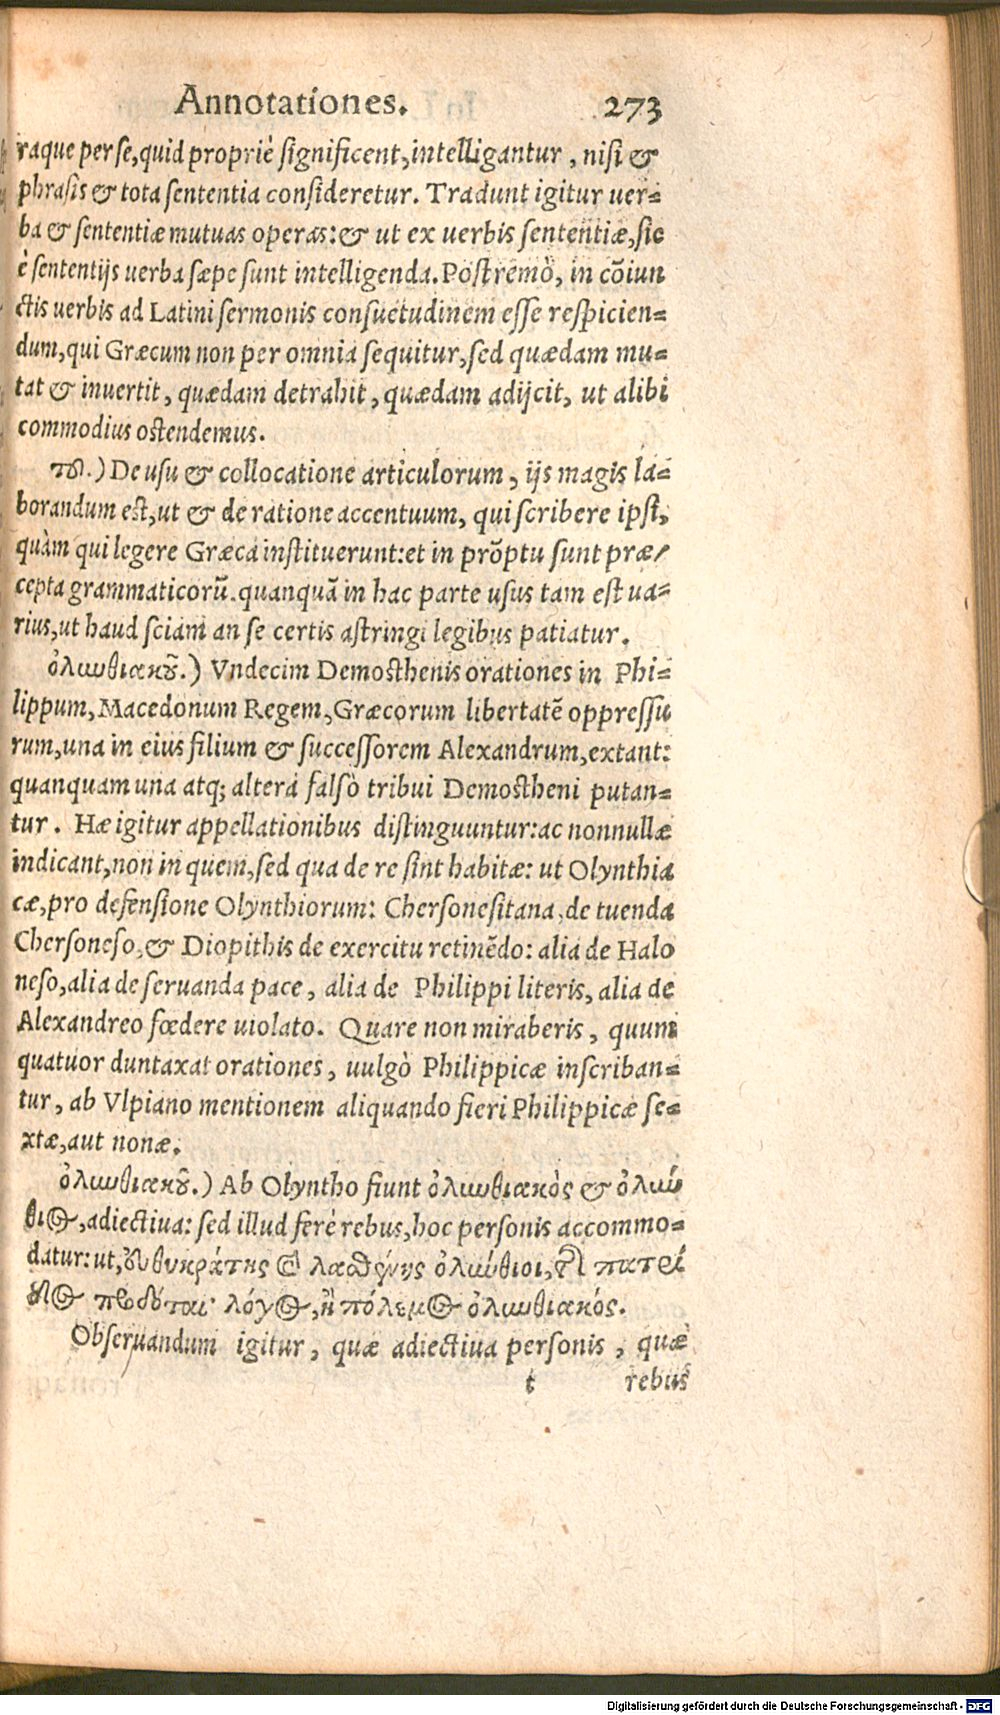 Annotationes. 273
raque per se, quid propriè significent, intelligantur, nisi &
phrasis & tota sententia consideretur. Tradunt igitur uer=
ba & sententiæ mutuas operas: & ut ex uerbis sententiæ, sic
è sententijs uerba sæpe sunt intelligenda. Postremò, in cõiun
ctis uerbis ad Latini sermonis consuetudinem esse respicien=
dum, qui Græcum non per omnia sequitur, sed quædam mu=
tat & inuertit, quædam detrahit, quædam adijcit, ut alibi
commodius ostendemus.
τοῦ.) De usu & collocatione articulorum, ijs magis la=
borandum est, ut & de ratione accentuum, qui scribere ipsi,
quàm qui legere Græca instituerunt: et in prõptu sunt præ/
cepta grammaticorũ. quanquã in hac parte usus tam est ua=
rius, ut haud sciam an se certis astringi legibus patiatur.
ὀλυνθιακοῦ.) Vndecim Demosthenis orationes in Phi=
lippum, Macedonum Regem, Græcorum libertatẽ oppressu
rum, una in eius filium & successorem Alexandrum, extant:
quanquam una atq; altera falsò tribui Demostheni putan=
tur. Hæ igitur appellationibus distinguuntur: ac nonnullæ
indicant, non in quem, sed qua de re sint habitæ: ut Olynthia
cæ, pro defensione Olynthiorum: Chersonesitana, de tuenda
Chersoneso, & Diopithis de exercitu retinẽdo: alia de Halo
neso, alia de seruanda pace, alia de Philippi literis, alia de
Alexandreo fœdere uiolato. Quare non miraberis, quum
quatuor duntaxat orationes, uulgò Philippicæ inscriban=
tur, ab Vlpiano mentionem aliquando fieri Philippicæ se=
xtæ, aut nonæ.
ὀλυνθιακοῦ.) Ab Olyntho fiunt ὀλυνθιακὸς & ὀλύν
θιος, adiectiua: sed illud ferè rebus, hoc personis accommo=
datur: ut, εὐθυκράτης καὶ λασθένης ὀλύνθιοι, τῆς πατρί
δος προδόται· λόγος, ἢ πόλεμος ὀλυνθιακός.
Obseruandum igitur, quæ adiectiua personis, quæ
t rebus
Digitalisierung gefördert durch die Deutsche Forschungsgemeinschaft - DFG